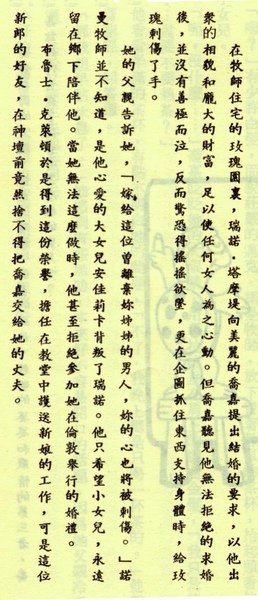 在牧師住宅的玫瑰園裏，瑞諾．塔摩堤向美麗的喬嘉提出結婚的要求，以他出
衆的相貌和龐大的財富，足以使任何女人為之心動。但喬嘉聽見他無法拒絕的求婚
後，並沒有喜極而泣，反而驚恐得搖搖欲墜，更在企圖抓住東西支持身體時，給玫
瑰刺傷了手。
她的父親告訴她，「嫁給這位曾離棄妳姊姊的男人，妳的心也將被刺傷。」諾
曼牧師並不知道，是他心愛的大女兒安佳莉卡背叛了瑞諾。他只希望小女兒，永遠
留在鄉下陪伴他。當她無法這麼做時，他甚至拒絕參加她在倫敦舉行的婚禮。
布魯士．克萊頓於是得到這份榮譽，擔任在教堂中護送新娘的工作，可是這位
新郎的好友，在神壇前竟然捨不得把喬嘉交給她的丈夫。